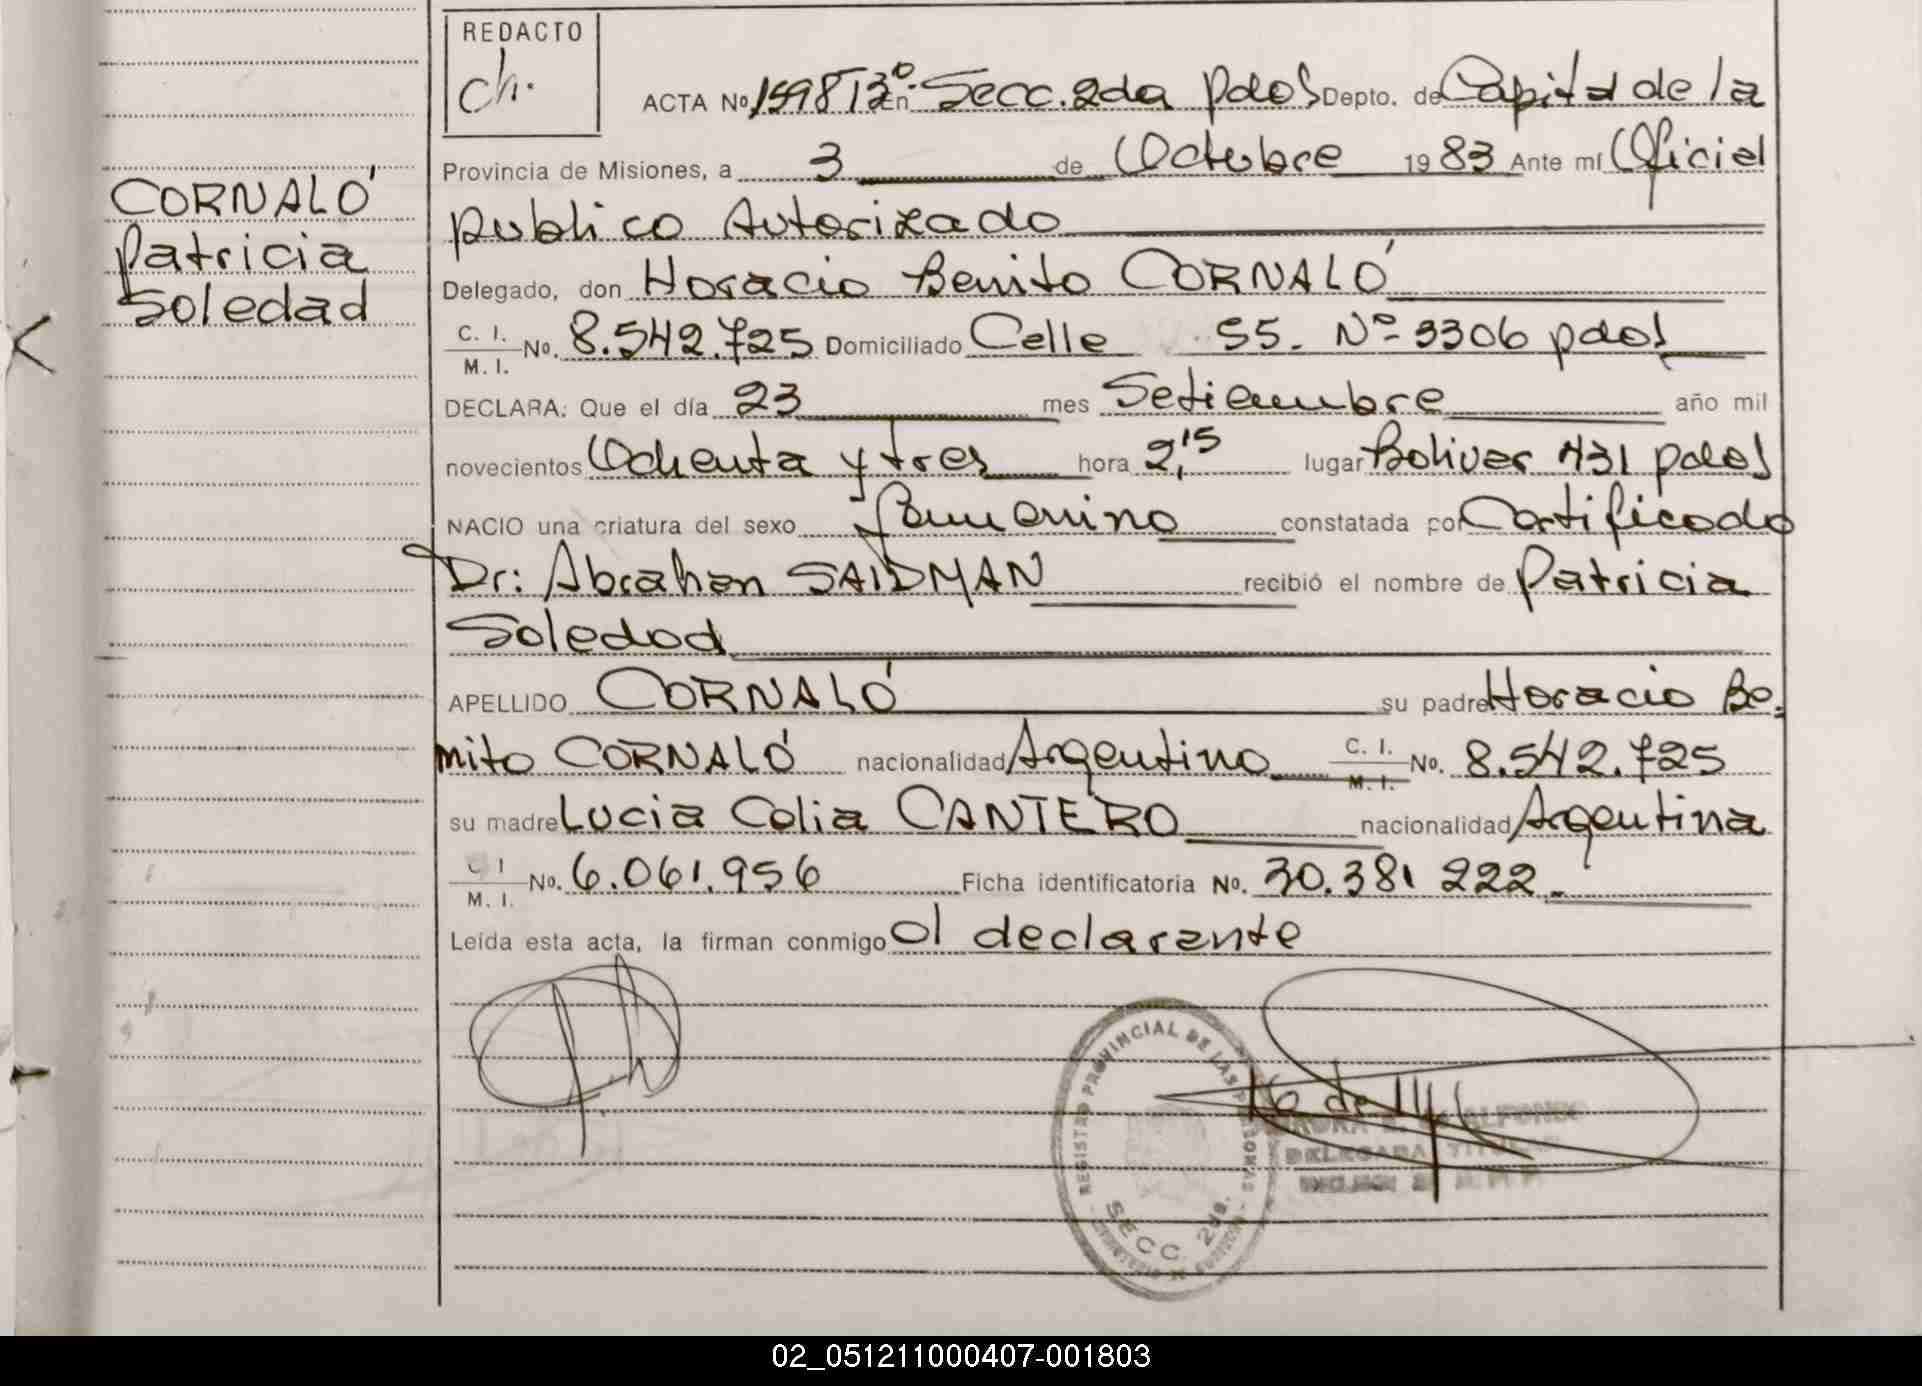 REDACTO
ch.
ACTA Nº 1598 T 3º En Secc. 2da pdas Depto. de Capital de la
Provincia de Misiones, a 3 de Octubre 1983 Ante mí Oficial
publico Autorizado
CORNALÓ
Patricia
Soledad
Delegado, don Horacio Benito CORNALÓ
C. I.
M. I. No. 8.542.725 Domiciliado Calle 55. Nº 3306 pdas
DECLARA: Que el día 23 mes Setiembre año mil
novecientos Ochenta y tres hora 2,15 lugar Bolivar 431 pdas
NACIO una criatura del sexo femenino constatada por Certificado
Dr: Abraham SAIDMAN recibió el nombre de Patricia
Soledad
APELLIDO CORNALÓ su padre Horacio Be-
nito CORNALÓ nacionalidad Argentino C. I.
M. I. No. 8.542.725
su madre Lucia Celia CANTERO nacionalidad Argentina
C I
M. I. No. 6.061.956 Ficha identificatoria No. 30.381 222.-
Leída esta acta, la firman conmigo el declarante
REGISTRO PROVINCIAL DE LAS PERSONAS
SECC. 2da.
ALFONSO
DELEGADA TITULAR
02_051211000407-001803